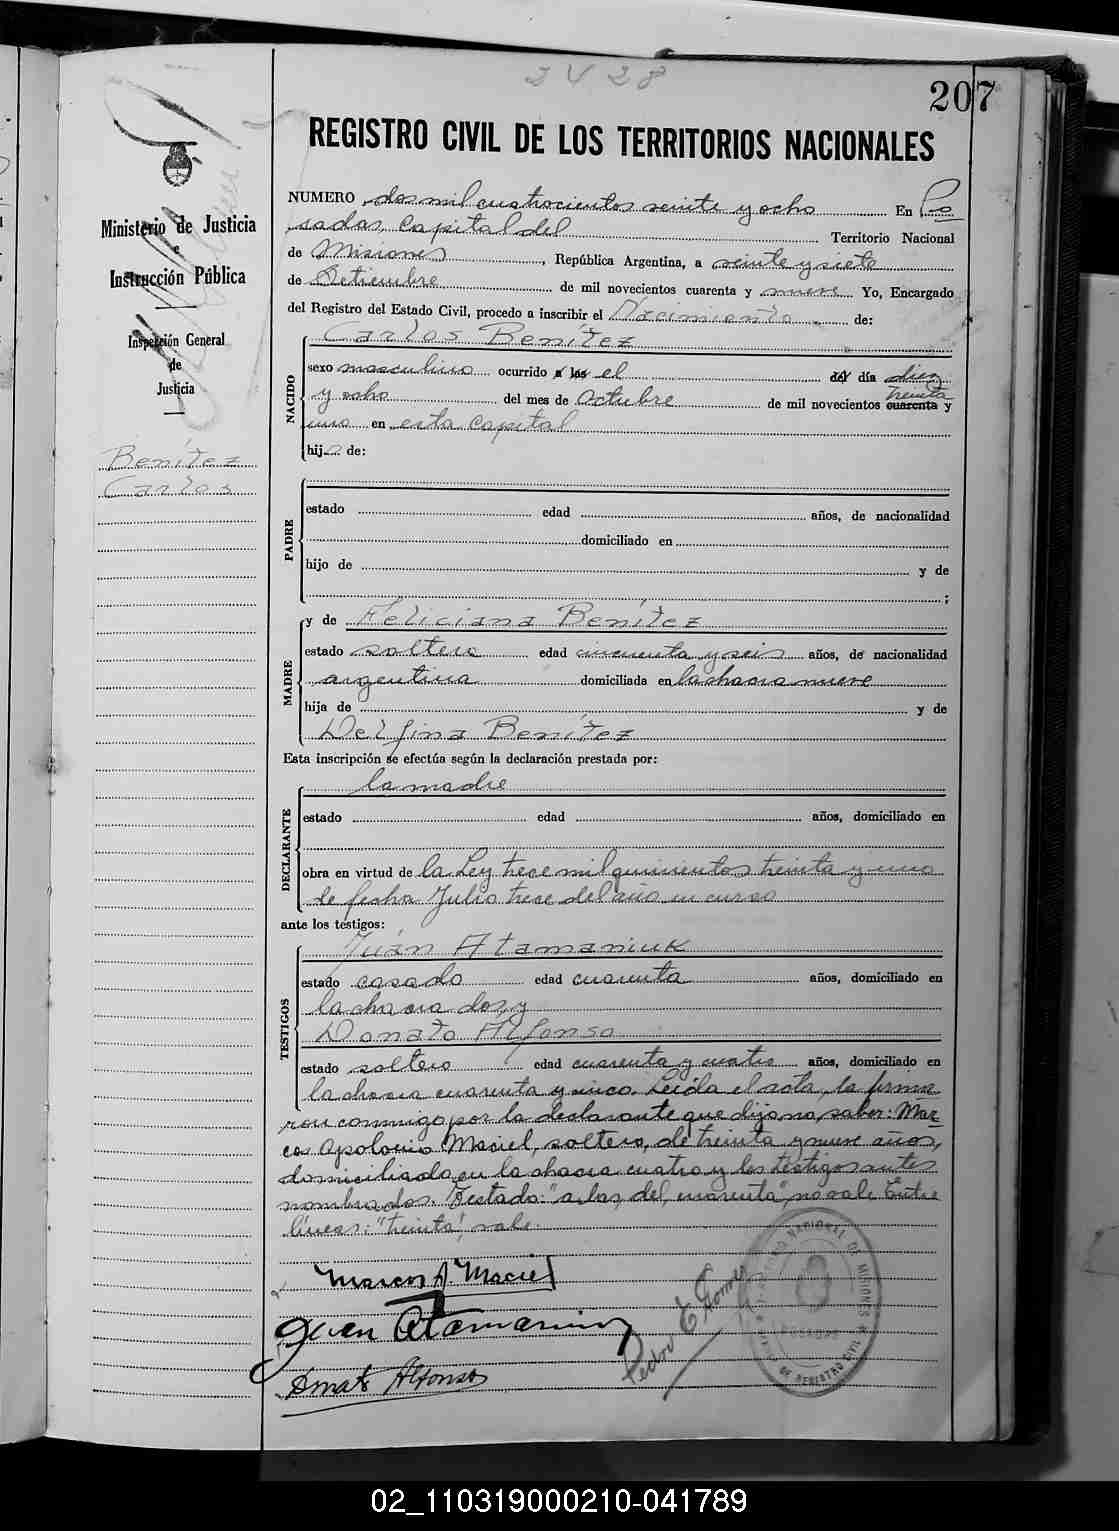 2428
207
REGISTRO CIVIL DE LOS TERRITORIOS NACIONALES
Ministerio de Justicia
e
Instrucción Pública
Inspección General
de
Justicia
Benítez
Carlos
NUMERO dos mil cuatrocientos veinte y ocho En Po
sadas, Capital del Territorio Nacional
de Misiones, República Argentina, a veinte y siete
de Setiembre de mil novecientos cuarenta y nueve Yo, Encargado
del Registro del Estado Civil, procedo a inscribir el Nacimiento de:
Carlos Benítez
NACIDO
sexo masculino ocurrido a las el del día diez
y ocho del mes de Octubre de mil novecientos cuarenta treinta y
uno en esta Capital
hijo de:
PADRE
estado edad años, de nacionalidad
domiciliado en
hijo de y de
;
MADRE
y de Feliciana Benítez
estado soltera edad cincuenta y seis años, de nacionalidad
argentina domiciliada en la chacra nueve
hija de y de
Delfina Benítez
Esta inscripción se efectúa según la declaración prestada por:
DECLARANTE
la madre
estado edad años, domiciliado en
obra en virtud de la Ley trece mil quinientos treinta y uno
de fecha Julio trece del año en curso
ante los testigos:
TESTIGOS
Juán Atamaniuk
estado casado edad cuarenta años, domiciliado en
la chacra dos, y
Donato Alfonso
estado soltero edad cuarenta y cuatro años, domiciliado en
la chacra cuarenta y cinco. Leída el acta, la firma
ron conmigo por la declarante que dijo no saber: Mar
cos Apolonio Maciel, soltero, de treinta y nueve años,
domiciliado en la chacra cuatro y los testigos antes
nombrados. Testado: "a las, del, cuarenta", no vale. Entre
líneas: "treinta", vale.
Marcos A. Maciel
Juan Atamaniuk
Donato Alfonso
Pedro E. Gomez
REGISTRO CIVIL
POSADAS
02_110319000210-041789